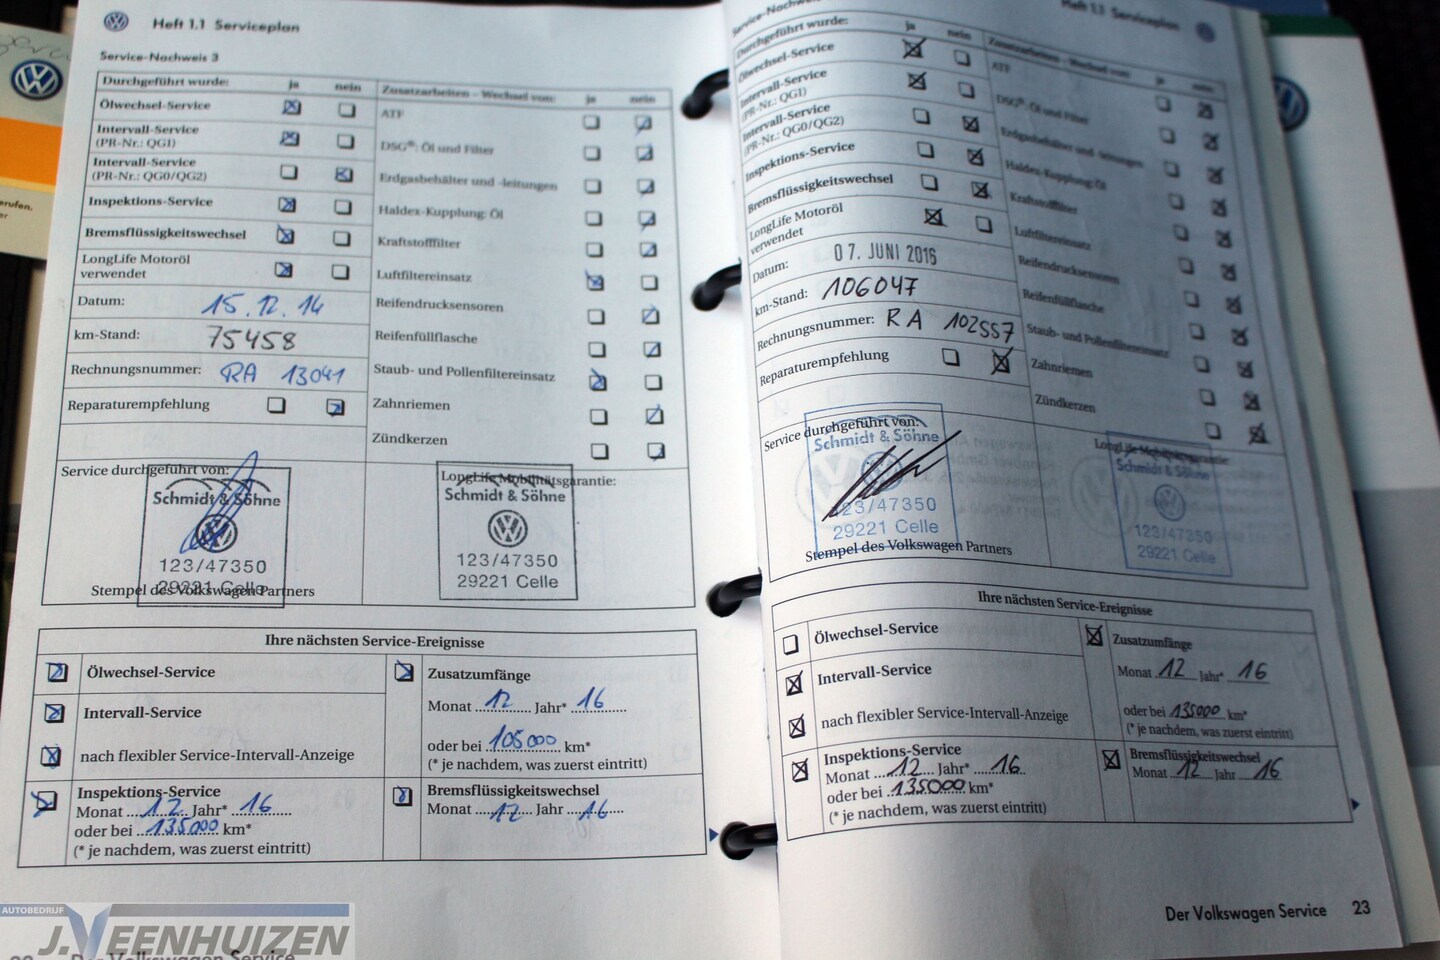 Heft 1.1 Serviceplan
Service-Nachweis 3
Durchgeführt wurde: ja nein
Ölwechsel-Service
Intervall-Service
(PR-Nr.: QG1)
Intervall-Service
(PR-Nr.: QG0/QG2)
Inspektions-Service
Bremsflüssigkeitswechsel
LongLife Motoröl
verwendet
Datum: 15.12.14
km-Stand: 75458
Rechnungsnummer: RA 13041
Reparaturempfehlung
Zusatzarbeiten - Wechsel von: ja nein
ATF
DSG®: Öl und Filter
Erdgasbehälter und -leitungen
Haldex-Kupplung: Öl
Kraftstofffilter
Luftfiltereinsatz
Reifendrucksensoren
Reifenfüllflasche
Staub- und Pollenfiltereinsatz
Zahnriemen
Zündkerzen
Service durchgeführt von:
Schmidt & Söhne
123/47350
29221 Celle
Stempel des Volkswagen Partners
LongLife Mobilitätsgarantie:
Schmidt & Söhne
123/47350
29221 Celle
Ihre nächsten Service-Ereignisse
Ölwechsel-Service
Intervall-Service
nach flexibler Service-Intervall-Anzeige
Inspektions-Service
Monat 12 Jahr* 16
oder bei 135000 km*
(* je nachdem, was zuerst eintritt)
Zusatzumfänge
Monat 12 Jahr* 16
oder bei 105000 km*
(* je nachdem, was zuerst eintritt)
Bremsflüssigkeitswechsel
Monat 12 Jahr 16
Der Volkswagen Service
Heft 1.1 Serviceplan
Service-Nachweis
Durchgeführt wurde: ja nein
Ölwechsel-Service
Intervall-Service
(PR-Nr.: QG1)
Intervall-Service
(PR-Nr.: QG0/QG2)
Inspektions-Service
Bremsflüssigkeitswechsel
LongLife Motoröl
verwendet
Datum: 07. JUNI 2016
km-Stand: 106047
Rechnungsnummer: RA 102557
Reparaturempfehlung
Zusatzarbeiten - Wechsel von: ja nein
ATF
DSG®: Öl und Filter
Erdgasbehälter und -leitungen
Haldex-Kupplung: Öl
Kraftstofffilter
Luftfiltereinsatz
Reifendrucksensoren
Reifenfüllflasche
Staub- und Pollenfiltereinsatz
Zahnriemen
Zündkerzen
Service durchgeführt von:
Schmidt & Söhne
123/47350
29221 Celle
Stempel des Volkswagen Partners
LongLife Mobilitätsgarantie:
Schmidt & Söhne
123/47350
29221 Celle
Ihre nächsten Service-Ereignisse
Ölwechsel-Service
Intervall-Service
nach flexibler Service-Intervall-Anzeige
Inspektions-Service
Monat 12 Jahr* 16
oder bei 135000 km*
(* je nachdem, was zuerst eintritt)
Zusatzumfänge
Monat 12 Jahr* 16
oder bei 135000 km*
(* je nachdem, was zuerst eintritt)
Bremsflüssigkeitswechsel
Monat 12 Jahr 16
Der Volkswagen Service 23
AUTOBEDRIJF
J. VEENHUIZEN